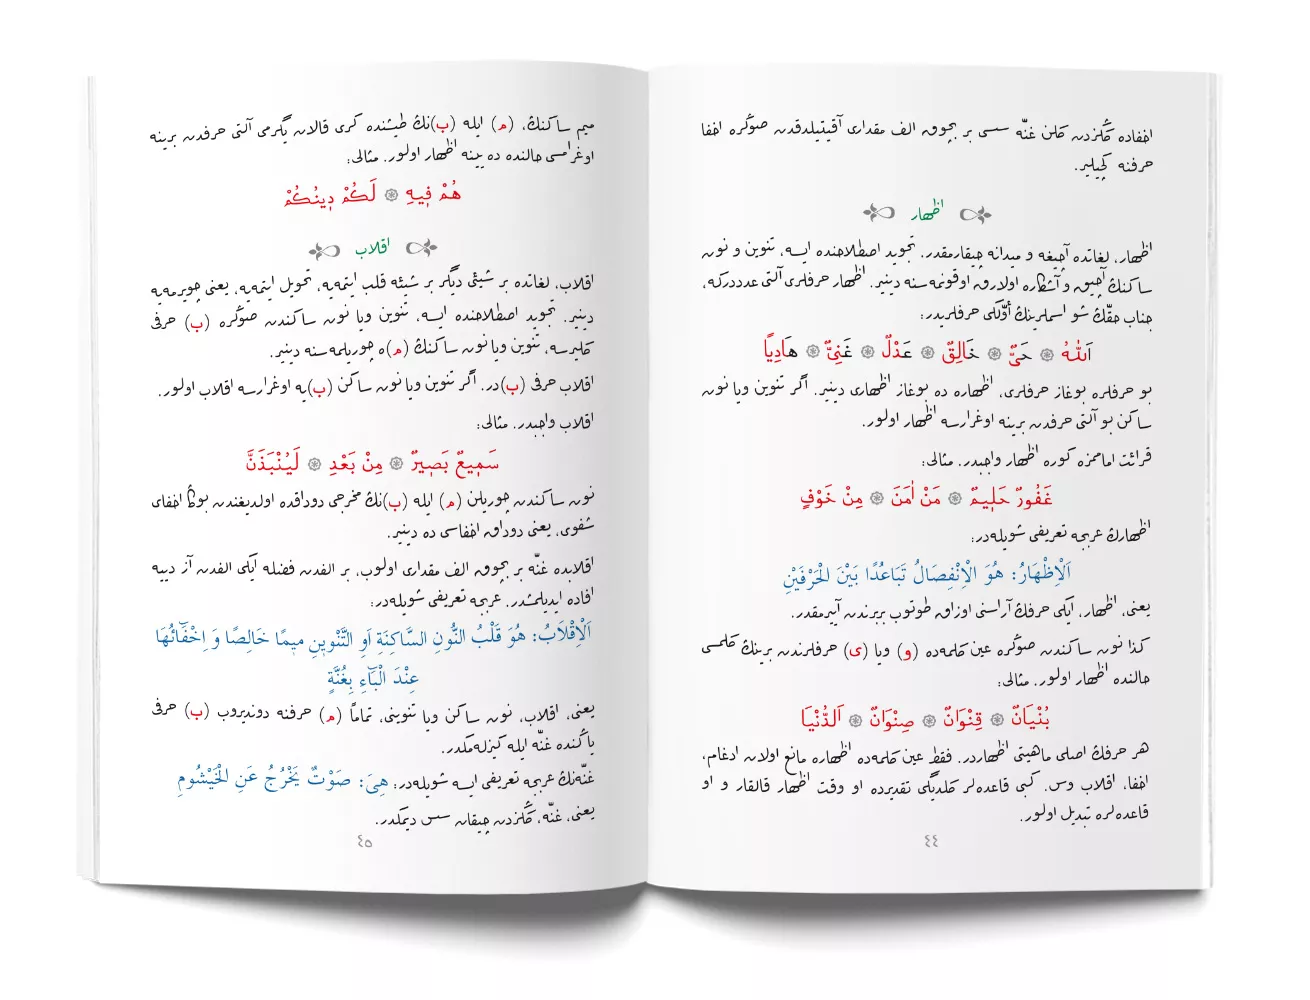 اخفاده گڭزدن گلن غنّه سسى بر بچوق الف مقدارى آقيتيلدقدن صوڭره اخفا
حرفنه گچيلير.
اظهار
اظهار، لغاتده آچيغه و ميدانه چيقارمقدر. تجويد اصطلاحنده ايسه، تنوين و نون
ساكنڭ آچيق و آشكاره اولارق اوقونمه‌سنه دينير. اظهار حرفلرى آلتى عدددركه،
جناب حقّڭ شو اسملرينڭ أوّلكى حرفلريدر:
اَللّٰهُ ۞ حَىٌّ ۞ خَالِقٌ ۞ عَدْلٌ ۞ غَنِىٌّ ۞ هَادِيًا
بو حرفلره بوغاز حرفلرى، اظهاره ده بوغاز اظهارى دينير. اگر تنوين ويا نون
ساكن بو آلتى حرفدن برينه اوغرارسه اظهار اولور.
قرائت اماممزه كوره اظهار واجبدر. مثالى:
غَفُورٌ حَلِيمٌ ۞ مَنْ اٰمَنَ ۞ مِنْ خَوْفٍ
اظهارڭ عربجه تعريفى شويله‌در:
اَلْاِظْهَارُ: هُوَ الْاِنْفِصَالُ تَبَاعُدًا بَيْنَ الْحَرْفَيْنِ
يعنى، اظهار، ايكى حرفڭ آراسنى اوزاق طوتوب بربرندن آييرمقدر.
كذا نون ساكندن صوڭره عين كلمه‌ده (و) ويا (ى) حرفلرندن برينڭ گلمسى
حالنده اظهار اولور. مثالى:
بُنْيَانٌ ۞ قِنْوَانٌ ۞ صِنْوَانٌ ۞ اَلدُّنْيَا
هر حرفڭ اصلى ماهيتى اظهاردر. فقط عين كلمه‌ده اظهاره مانع اولان ادغام،
اخفا، اقلاب وس. كبى قاعده‌لر گلديگى تقديرده او وقت اظهار قالقار و او
قاعده‌لره تبديل اولور.
٤٤
ميم ساكنڭ، (م) ايله (ب)نڭ طيشنده گرى قالان يگرمى آلتى حرفدن برينه
اوغرامسى حالنده ده يينه اظهار اولور. مثالى:
هُمْ فِيهِ ۞ لَكُمْ دِينُكُمْ
اقلاب
اقلاب، لغاتده بر شيئى ديگر بر شيئه قلب ايتمه‌يه، تحويل ايتمه‌يه، يعنى چويرمه‌يه
دينير. تجويد اصطلاحنده ايسه، تنوين ويا نون ساكندن صوڭره (ب) حرفى
گليرسه، تنوين ويا نون ساكنڭ (م)ه چوريلمه‌سنه دينير.
اقلاب حرفى (ب)در. اگر تنوين ويا نون ساكن (ب)يه اوغرارسه اقلاب اولور.
اقلاب واجبدر. مثالى:
سَمِيعٌ بَصِيرٌ ۞ مِنْ بَعْدِ ۞ لَيُنْبَذَنَّ
نون ساكندن چوريلن (م) ايله (ب)نڭ مخرجى دوداقده اولديغندن بوڭا اخفاى
شفوى، يعنى دوداق اخفاسى ده دينير.
اقلابده غنّه بر بچوق الف مقدارى اولوب، بر الفدن فضله ايكى الفدن آز دييه
افاده ايديلمشدر. عربجه تعريفى شويله‌در:
اَلْاِقْلَابُ: هُوَ قَلْبُ النُّونِ السَّاكِنَةِ اَوِ التَّنْوِينِ مِيمًا خَالِصًا وَ اِخْفَائُهَا
عِنْدَ الْبَاءِ بِغُنَّةٍ
يعنى، اقلاب، نون ساكن ويا تنوينى، تمامًا (م) حرفنه دونديروب (ب) حرفى
ياننده غنّه ايله گيزله‌مكدر.
غنّه‌نڭ عربجه تعريفى ايسه شويله‌در: هِىَ: صَوْتٌ يَخْرُجُ عَنِ الْخَيْشُومِ
يعنى، غنّه، گڭزدن چيقان سس ديمكدر.
٤٥